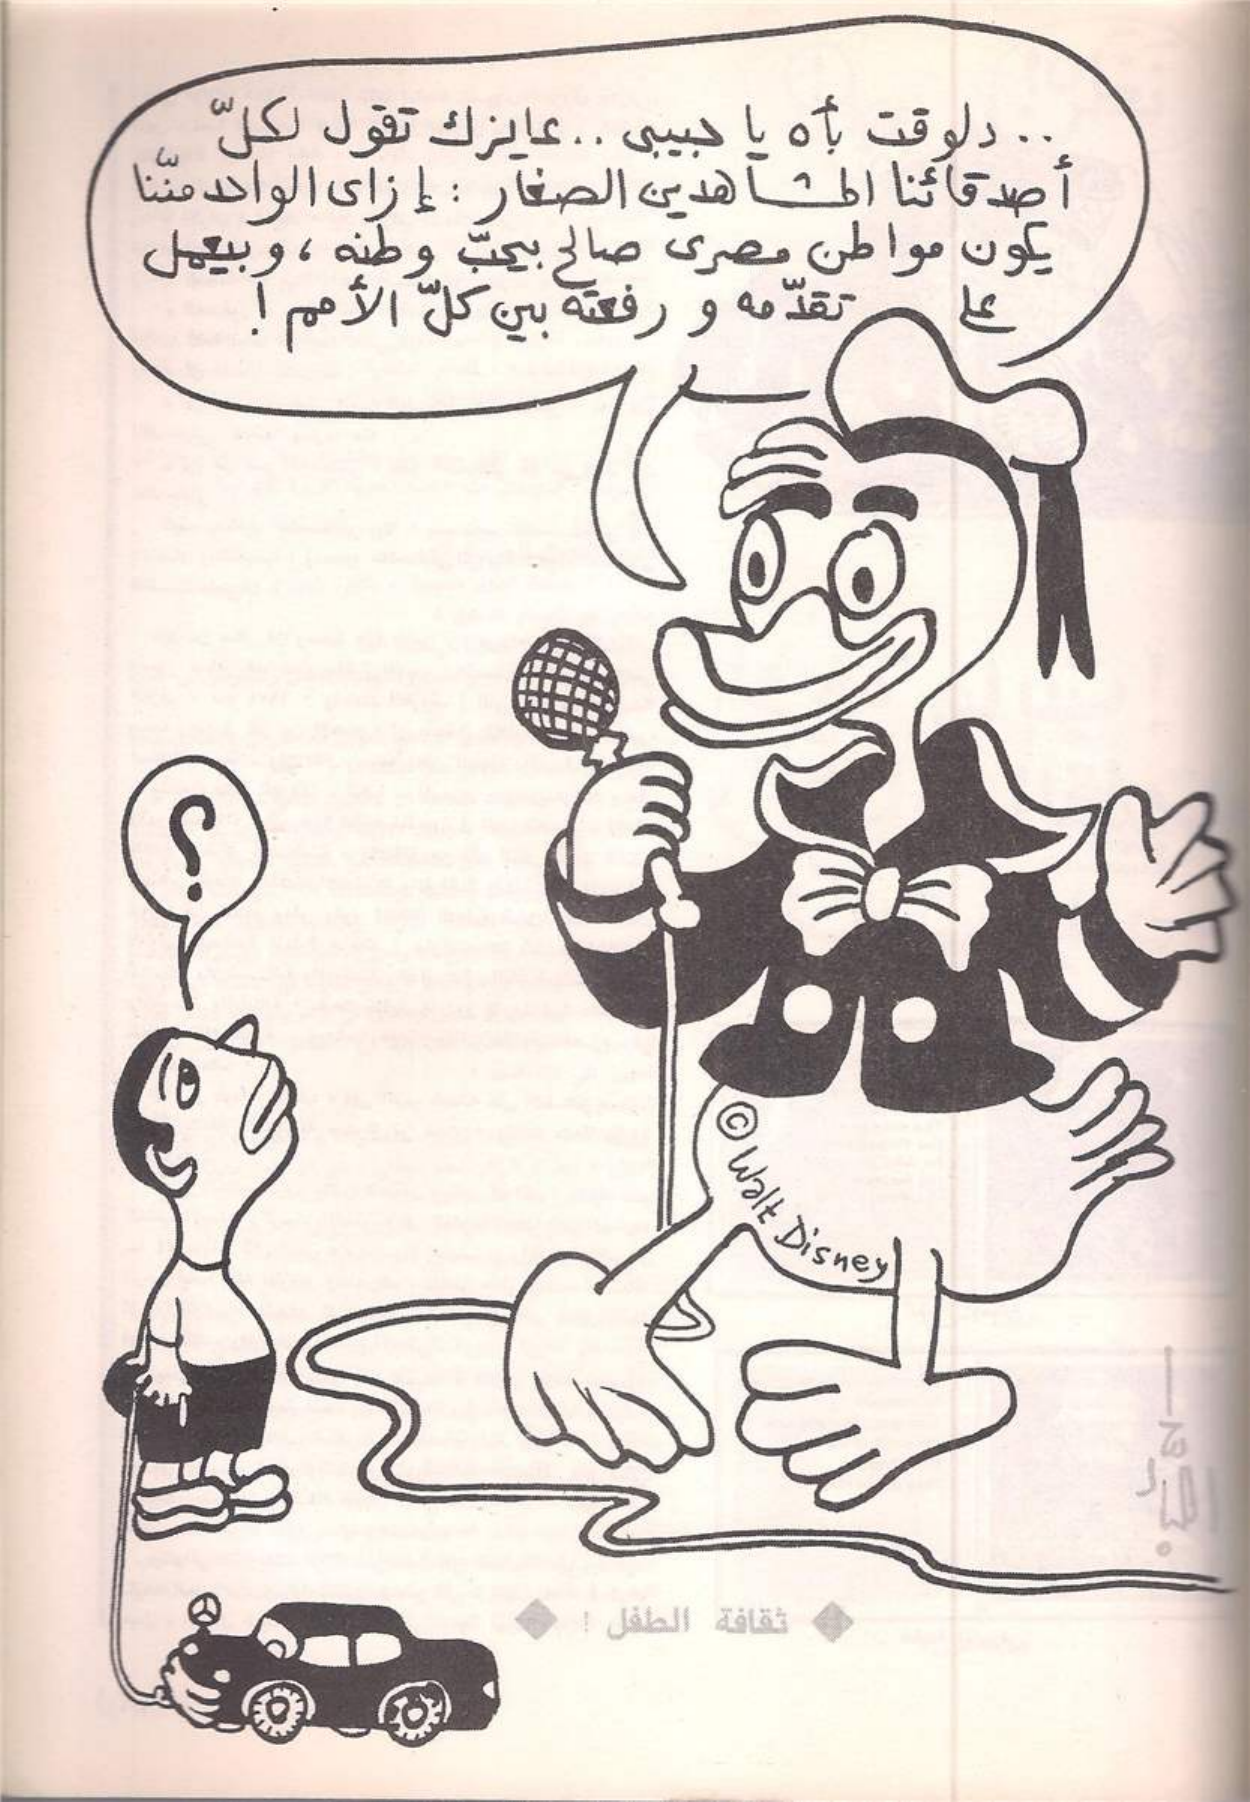 .. دلوقت بأه يا حبيبى .. عايزك تقول لكلّ
أصدقائنا المشاهدين الصغار : إزاى الواحد منّنا
يكون مواطن مصرى صالح بيحبّ وطنه ، وبيعمل
على تقدّمه و رفعته بين كلّ الأمم !
؟
© Walt Disney
ثقافة الطفل !